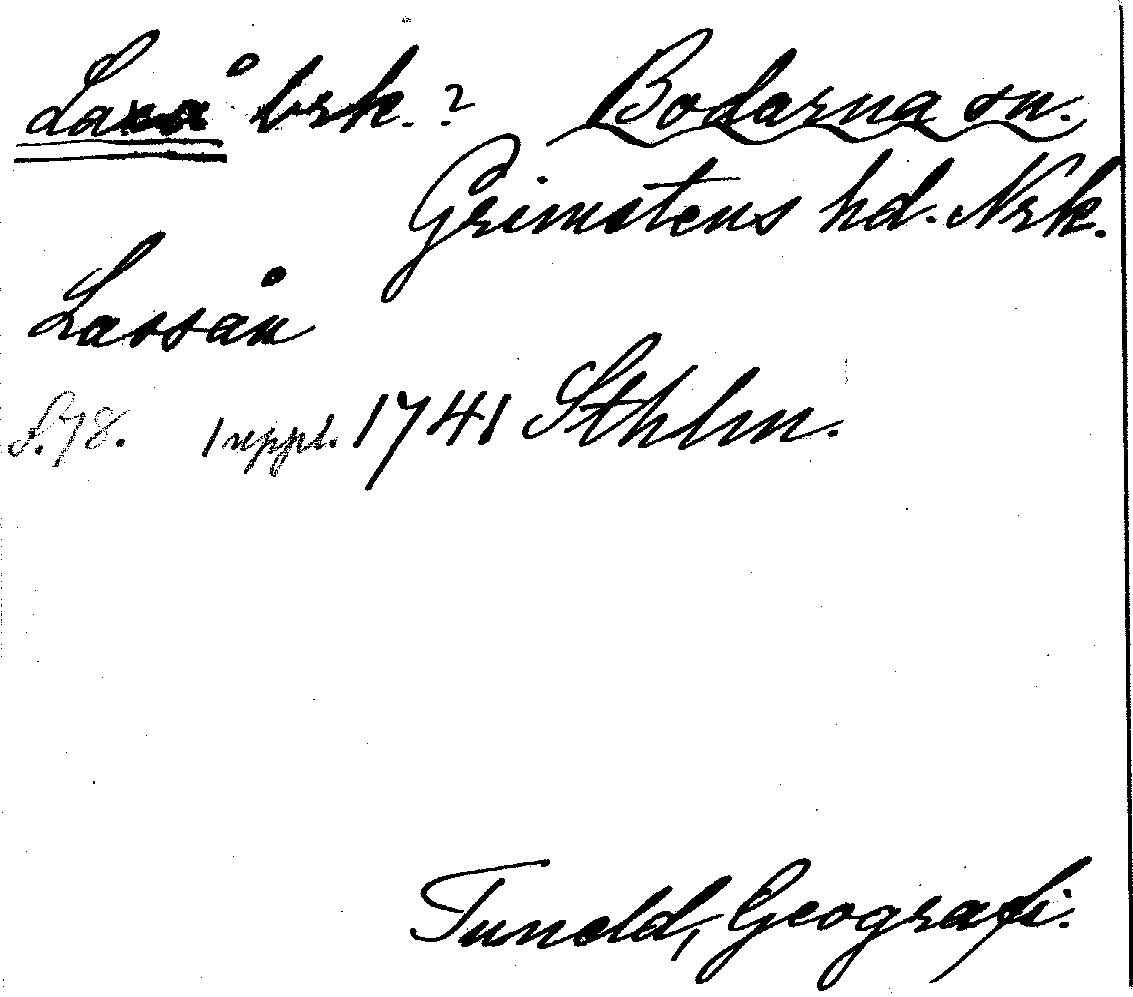 Laxå brk.? Bodarna sn.
Grimstens hd. Nrk.
Lassån
S.78. 1 uppl. 1741 Sthlm.
Tuneld, Geografi.